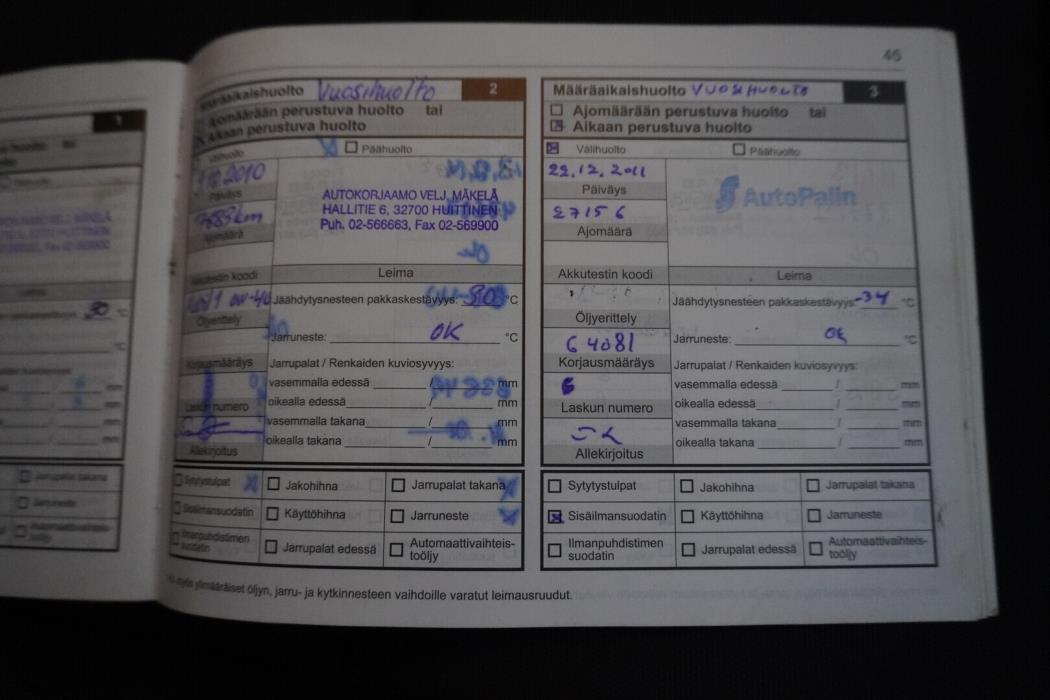 46
Määräaikaishuolto Vuosihuolto 2
Ajomäärään perustuva huolto tai
Aikaan perustuva huolto
Välihuolto
Päähuolto
Päiväys
AUTOKORJAAMO VELJ. MÄKELÄ
HALLITIE 6, 32700 HUITTINEN
Puh. 02-566663, Fax 02-569900
Ajomäärä
Akkutestin koodi
Leima
Jäähdytysnesteen pakkaskestävyys: °C
Öljyerittely
Jarruneste: OK °C
Korjausmääräys
Jarrupalat / Renkaiden kuviosyvyys:
vasemmalla edessä / mm
Laskun numero
oikealla edessä / mm
vasemmalla takana / mm
Allekirjoitus
oikealla takana / mm
Sytytystulpat
Jakohihna
Jarrupalat takana
Sisäilmansuodatin
Käyttöhihna
Jarruneste
Ilmanpuhdistimen
suodatin
Jarrupalat edessä
Automaattivaihteis-
toöljy
myös ylimääräiset öljyn, jarru- ja kytkinnesteen vaihdoille varatut leimausruudut.
Määräaikaishuolto VUOSIHUOLTO 3
Ajomäärään perustuva huolto tai
Aikaan perustuva huolto
Välihuolto
Päähuolto
22.12.2011
Päiväys
AutoPalin
27156
Ajomäärä
Akkutestin koodi
Leima
Jäähdytysnesteen pakkaskestävyys -34 °C
Öljyerittely
Jarruneste: OK °C
64081
Korjausmääräys
Jarrupalat / Renkaiden kuviosyvyys:
vasemmalla edessä / mm
oikealla edessä / mm
Laskun numero
vasemmalla takana / mm
Allekirjoitus
oikealla takana / mm
Sytytystulpat
Jakohihna
Jarrupalat takana
Sisäilmansuodatin
Käyttöhihna
Jarruneste
Ilmanpuhdistimen
suodatin
Jarrupalat edessä
Automaattivaihteis-
toöljy